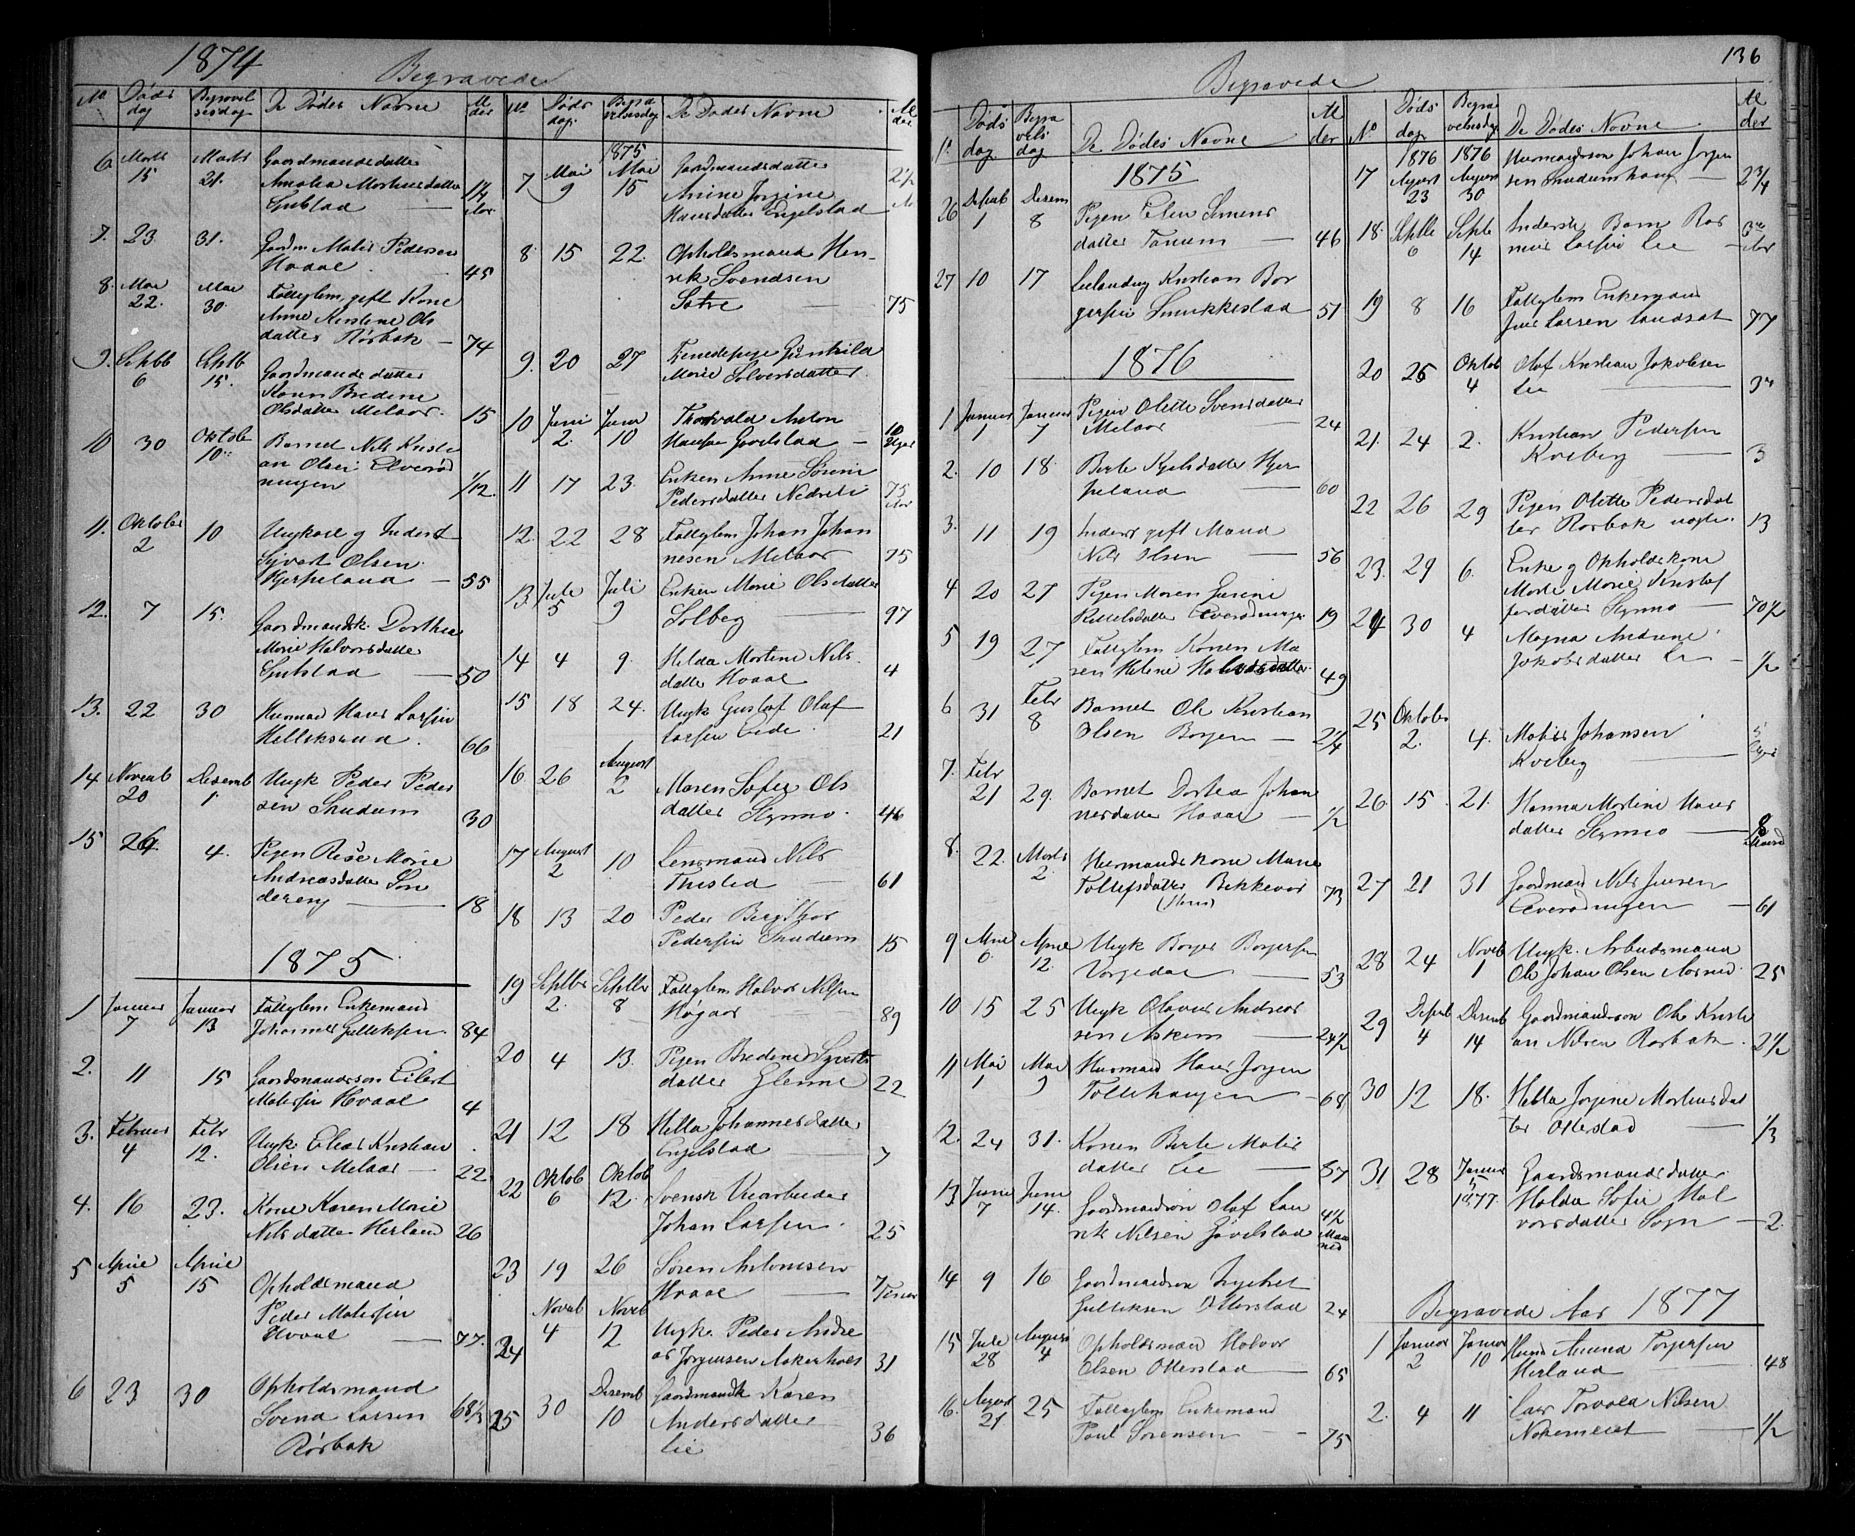 1874
Begravede
No Døds dag Begravelsesdag De Dødes Navne Alder
6. Marts 15 Marts 21. Gaardmandsdatter
Amalia Mortensdatter
Gutstad 1½ Aar
7. 23 31. Gaardm Matis Pedersen
Hvaal 45
8. Mai 22. Mai 30. Fattiglem, gift Kone
Anne Kirstine Ols
datter Rørbak 74
9. Septb 6 Septb 15. Gaardmandsdatter
Karen Bredine
Olsdatter Melaas 15
10 30 Oktob 10 Barnet Nils Kristi
an Olsen
1/12
11. Oktober 2 10 Ungkarl og Inderst
Syvert Olsen
Kjerpeland 55
12. 7 15. Gaardmandsk. Dorthea
Marie Halvorsdatter
Gutstad 50
13. 22 30 Husmand Hans Larsen
Helleksrud 66
14 Novemb 20 Desemb 1 Ungk Peder Peder
sen Skudum 30
15 26 4. Pigen Marie
Andreasdatter Søn
dereng 18
1875
1 Januar 7 Januar 13 Fattiglem Enkemand
Johannes Gulleksen 84
2. 11 15 Gaardmandssøn Eilert
Matisen Hvaal 4
3. Februar 4 Febr 12. Ungk Elias Kristian
Olsen Melaas 22
4. 16 23. Kone Karen Marie
Nilsdatter Herland 26
5 April 5 April 15 Opholdsmand
Peder Matisen
Hvaal 77
6 23 30 Opholdsmand
Svend Larsen
Rørbak 68½
No Døds dag Begravelsesdag De Dødes Navne Alder
1875
7 Mai 9 Mai 15 Gaardmandsdatter
Anine Jorgine
Hansdatter Engelstad 2½
8 15 22. Opholdsmand Hen
rik Svendsen
Sætre 75
9. 20 27 Gunhild
Marie Solversdatter
10 Juni 2. Juni 10 Thorvald Anton
Hansen Gavelstad 10
11 17 23. Enken Anne Sørine
Pedersdatter 75 Aar
12. 22 28 Fattiglem Johan Johan
nesen Melaas 75
13. Juli 5 Juli 9 Enken Marie Olsdatter
Solberg 97
14 4 9. Hilda Martine Nils
datter Hvaal 4
15 18 24. Ungk Gustaf Olaf
Larsen Eide 21
16. 26 August 2 Maren Sofie Ols
datter Stymo 46
17 August 2 10 Lensmand Nils
Thisted 61
18 13 20 Peder
Pedersen Skudum 15
19 Septbr 2. Septbr 8 Fattiglem Halvor Nilsen
Høgaas 89
20 4 13. Pigen Bredine Syverts
datter Glenne 22
21 12 18 Hella Johannesdatter
Engelstad 7
22 Oktob 6 Oktob 12. Svensk
Johan Larsen 25
23 19 26 Søren Antonisen
Hvaal 7
24 Novb 4 Novb 12 Ungk. Peder Andre
as Jørgensen Askerholt 31
25 30 Desemb 10 Gaardmandk Karen
Andersdatter
Lie 36
136
Begravede
No Døds dag Begravelsdag De Dødes Navne Alder
1875
26 Desmb 1 Desem 8 Pigen Elen Simens
datter Tanum 46
27 10 17 Kristian Bor
gersen Smukkestad 51
1876
1 Januar 1 Januar 7 Pigen Olette Svensdatter
Melaas 24
2. 10 18. Berte Kjelsdatter Kjer
peland 60
3. 11 19 Inderst gift Mand
Nils Olsen 56
4 20 27 Pigen Maren Gurine
Kittelsdatter 19
5 19 27 Fattiglem Konen Ma
ren Helene Halvorsdatter 49
6 31 Febr 8 Barnet Ole Kristian
Olsen Borgen 2¼
7. Febr 21 29. Barnet Dortea Johan
nesdatter Hvaal ½
8. 22. Marts 2. Husmandskone Maria
Tollefsdatter Bekkevar 73
9 April 6 April 12. Ungk Borger Borgersen
Vorgedal 53
10 15 25 Ungk Olavus Andreas
sen Askim 24½
11 Mai 1 Mai 9 Husmand Hans Jørgen
Tollehaugen 68
12. 24 31. Konen Berte Matis
datter Lie 87
13 Juni 7 Juni 14. Gaardmandssøn Olaf Lau
rits Nilsen Gavelstad 4½ Maaned
14 9 16 Gaardmandssøn
Gulleksen Otterstad 24
15 Juli 28 August 4 Opholdsman Halvor
Olsen Otterstad 65
16. August 21 25 Fattiglem Enkemand
Poul Sørensen 75
No Døds dag Begravelsesdag De Dødes Navne Alder
17 1876 August 23 1876 August 30 Husmandssøn Johan Jørgen
sen 2¾
18. Septbr 6 Septb 14 Inderste Barn Ras
mus Larsen Lie 3
19 8 16 Fattiglem Enkemand
Jens Larsen 77
20 25 Oktob 4 Olaf Kristian Jakobsen
Lie 3
21. 24 2. Kristian Pedersen
Kreberg 3
22 26 29 Pigen Olette Pedersdat
ter Rørbak 13
23. 29 6. Enke og Opholdskone
Marte Marie Kristof
fersdatter Stymo 70½
24 30 4 Magna Andrine
Jakobsdatter Lie ½
25 Oktober 2. 4. Matis Johansen
Kreberg
26. 15 21. Hanna Martine Hans
datter Stymo 8 Maaned
27 21 31 Gaardmand Nils Jensen
61
28 24 Novb 1 Ungk. Arbeidsmand
Ole Johan Olsen 25
29 Desmb 4 Desemb 14 Gaardmandssøn Ole Kristi
an Nilsen Rørbak 2½
30 12 18. Hella Jorgine Mortensdat
ter Otterstad ⅓
31 28 Januar 5 1877 Gaardmandsdatter
Halda Sofie Hal
vorsdatter Sogn 2
Begravede Aar 1877
1 Januar 2 Januar 10 Torgersen
Herland 48
2. 4 11 Lars Torvald Nilsen
½